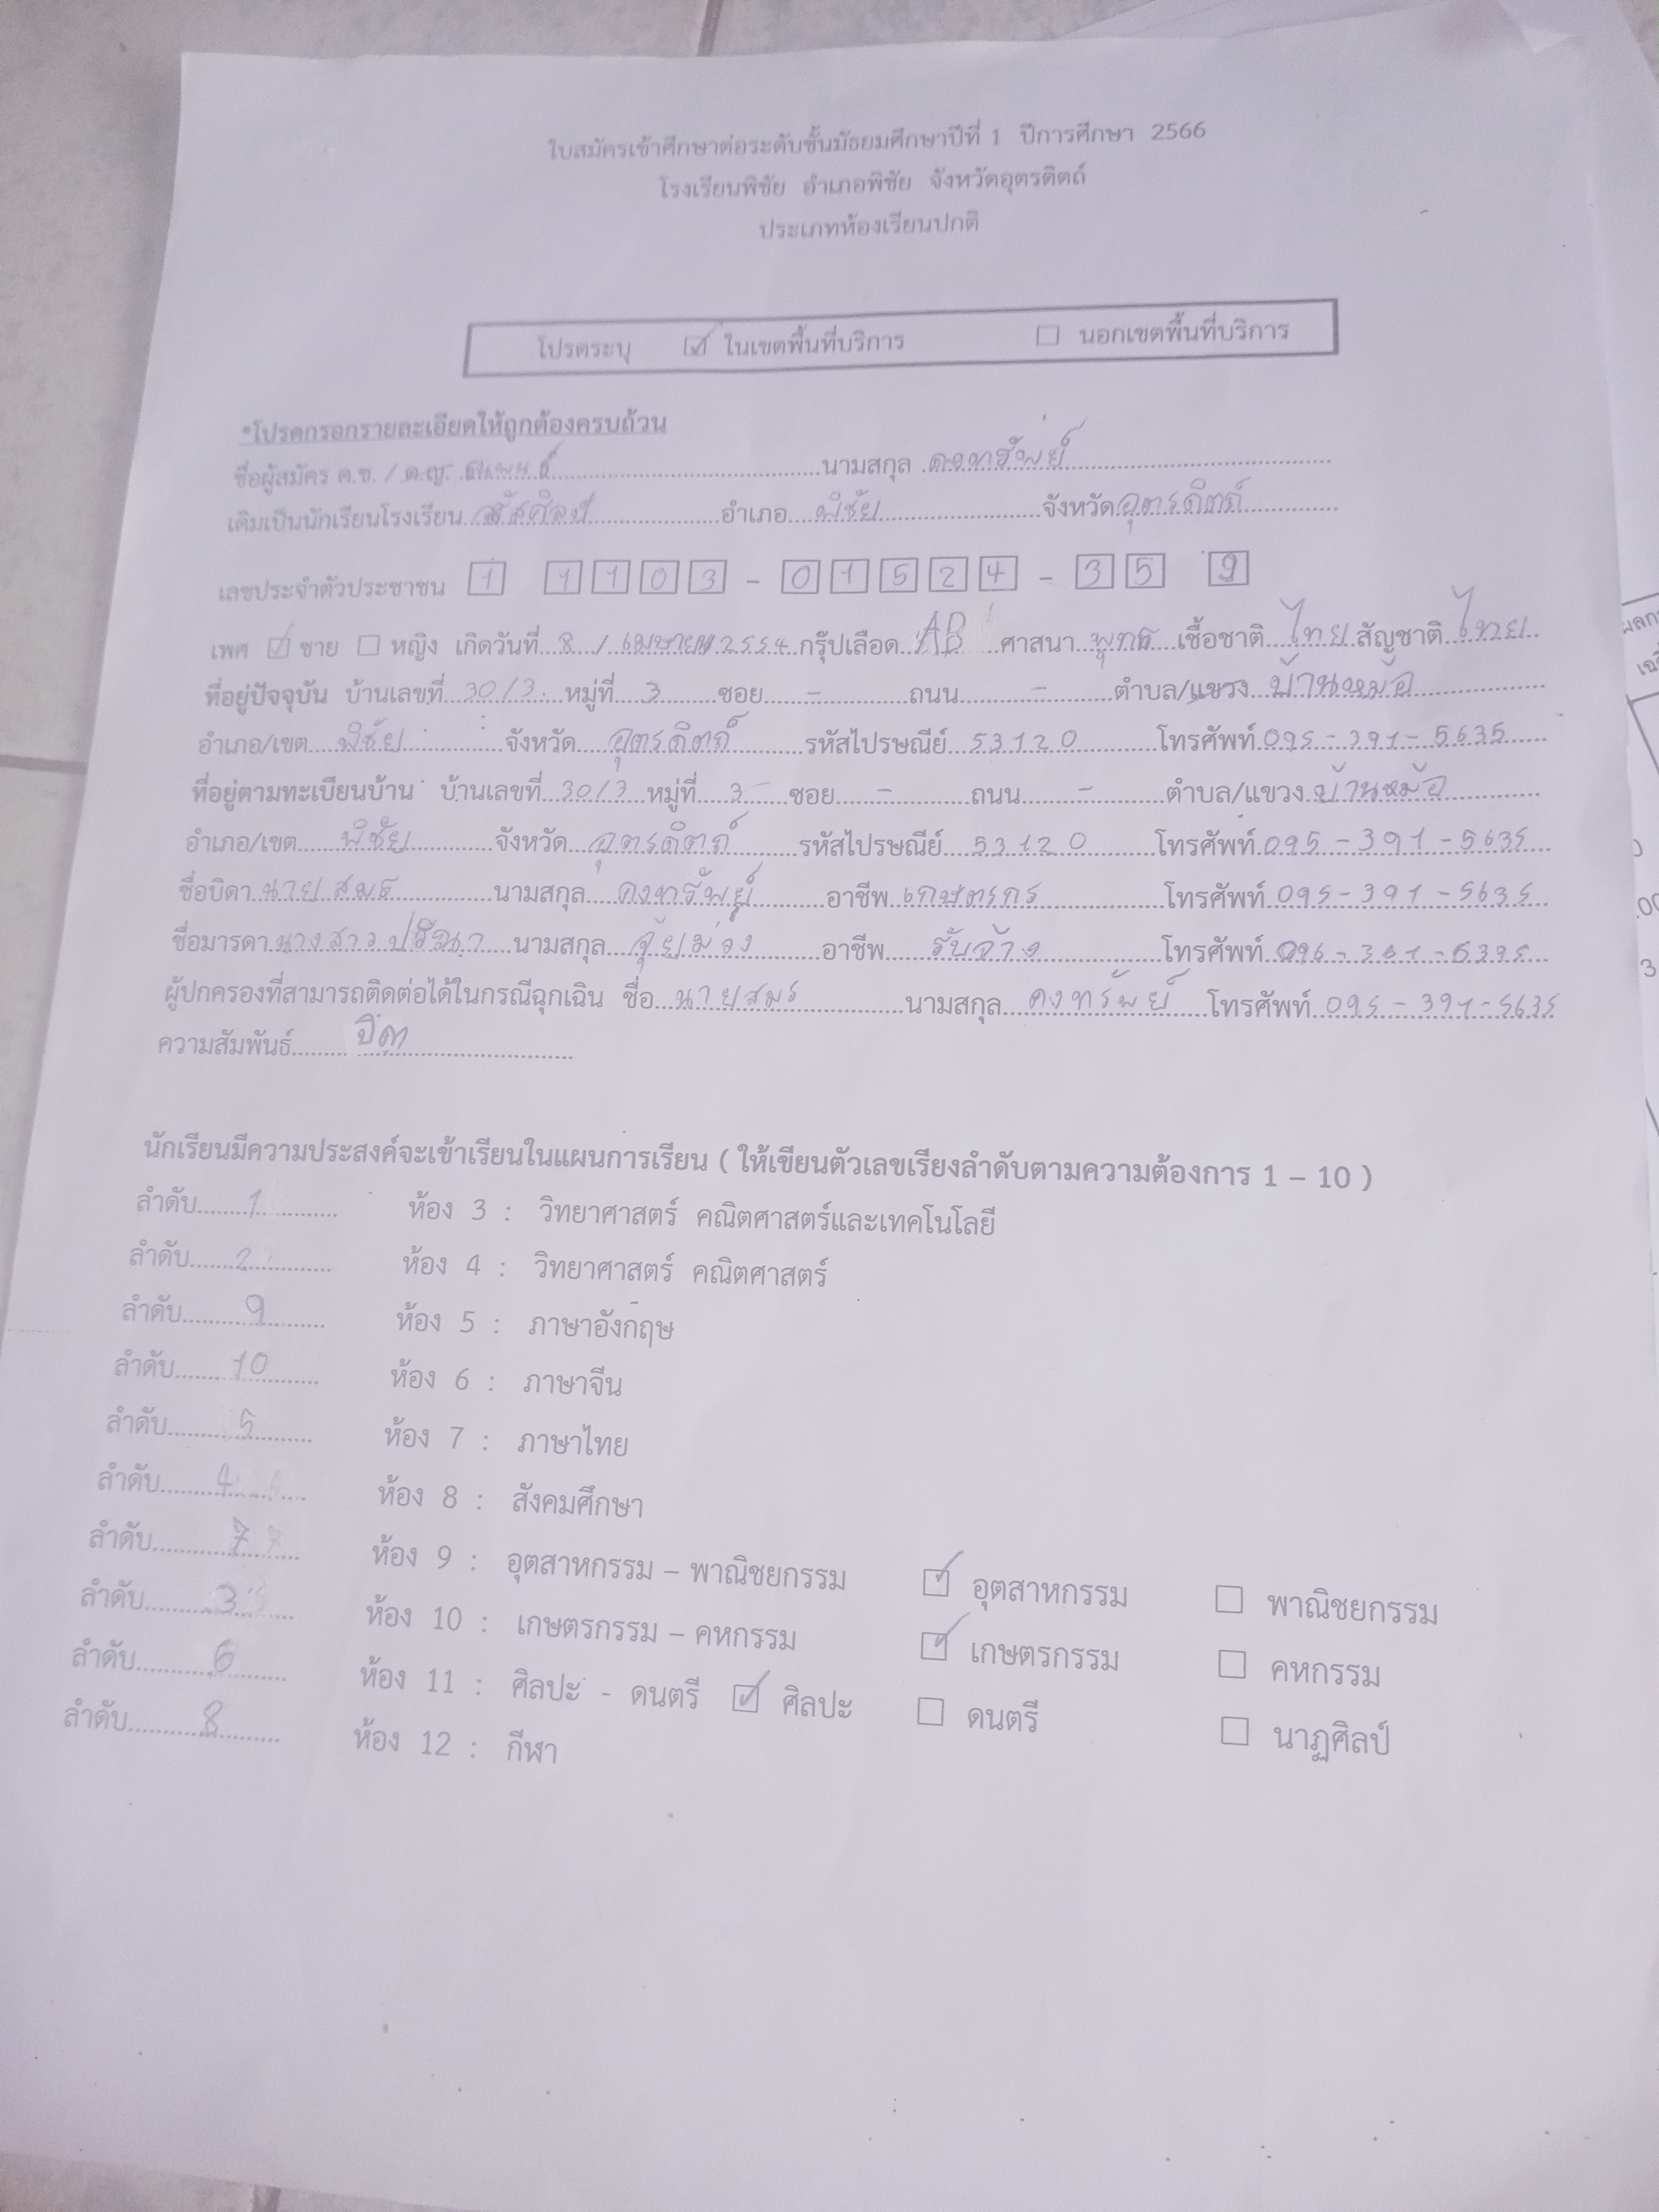 ใบสมัครเข้าศึกษาต่อระดับชั้นมัธยมศึกษาปีที่ 1 ปีการศึกษา 2566
โรงเรียนพิชัย อำเภอพิชัย จังหวัดอุตรดิตถ์
ประเภทห้องเรียนปกติ
โปรดระบุ ในเขตพื้นที่บริการ นอกเขตพื้นที่บริการ
*โปรดกรอกรายละเอียดให้ถูกต้องครบถ้วน
ชื่อผู้สมัคร ด.ช. / ด.ญ. นามสกุล คงทรัพย์
เดิมเป็นนักเรียนโรงเรียน อำเภอ พิชัย จังหวัด อุตรดิตถ์
เลขประจำตัวประชาชน 1 1103 - 01524 - 35 9
เพศ ชาย หญิง เกิดวันที่ 8 / เมษายน 2554 กรุ๊ปเลือด AB ศาสนา พุทธ เชื้อชาติ ไทย สัญชาติ ไทย
ที่อยู่ปัจจุบัน บ้านเลขที่ 30/3 หมู่ที่ 3 ซอย - ถนน - ตำบล/แขวง บ้านหม้อ
อำเภอ/เขต พิชัย จังหวัด อุตรดิตถ์ รหัสไปรษณีย์ 53120 โทรศัพท์ 095-391-5635
ที่อยู่ตามทะเบียนบ้าน บ้านเลขที่ 30/3 หมู่ที่ 3 ซอย - ถนน - ตำบล/แขวง บ้านหม้อ
อำเภอ/เขต พิชัย จังหวัด อุตรดิตถ์ รหัสไปรษณีย์ 53120 โทรศัพท์ 095-391-5635
ชื่อบิดา นาย นามสกุล คงทรัพย์ อาชีพ เกษตรกร โทรศัพท์ 095-391-5635
ชื่อมารดา นางสาว นามสกุล จุ้ยม่วง อาชีพ รับจ้าง โทรศัพท์
ผู้ปกครองที่สามารถติดต่อได้ในกรณีฉุกเฉิน ชื่อ นาย นามสกุล คงทรัพย์ โทรศัพท์ 095-391-5635
ความสัมพันธ์
นักเรียนมีความประสงค์จะเข้าเรียนในแผนการเรียน ( ให้เขียนตัวเลขเรียงลำดับตามความต้องการ 1 – 10 )
ลำดับ 1 ห้อง 3 : วิทยาศาสตร์ คณิตศาสตร์และเทคโนโลยี
ลำดับ 2 ห้อง 4 : วิทยาศาสตร์ คณิตศาสตร์
ลำดับ 9 ห้อง 5 : ภาษาอังกฤษ
ลำดับ 10 ห้อง 6 : ภาษาจีน
ลำดับ 5 ห้อง 7 : ภาษาไทย
ลำดับ 4 ห้อง 8 : สังคมศึกษา
ลำดับ 7 ห้อง 9 : อุตสาหกรรม – พาณิชยกรรม อุตสาหกรรม พาณิชยกรรม
ลำดับ 3 ห้อง 10 : เกษตรกรรม – คหกรรม เกษตรกรรม คหกรรม
ลำดับ 6 ห้อง 11 : ศิลปะ - ดนตรี ศิลปะ ดนตรี นาฏศิลป์
ลำดับ 8 ห้อง 12 : กีฬา